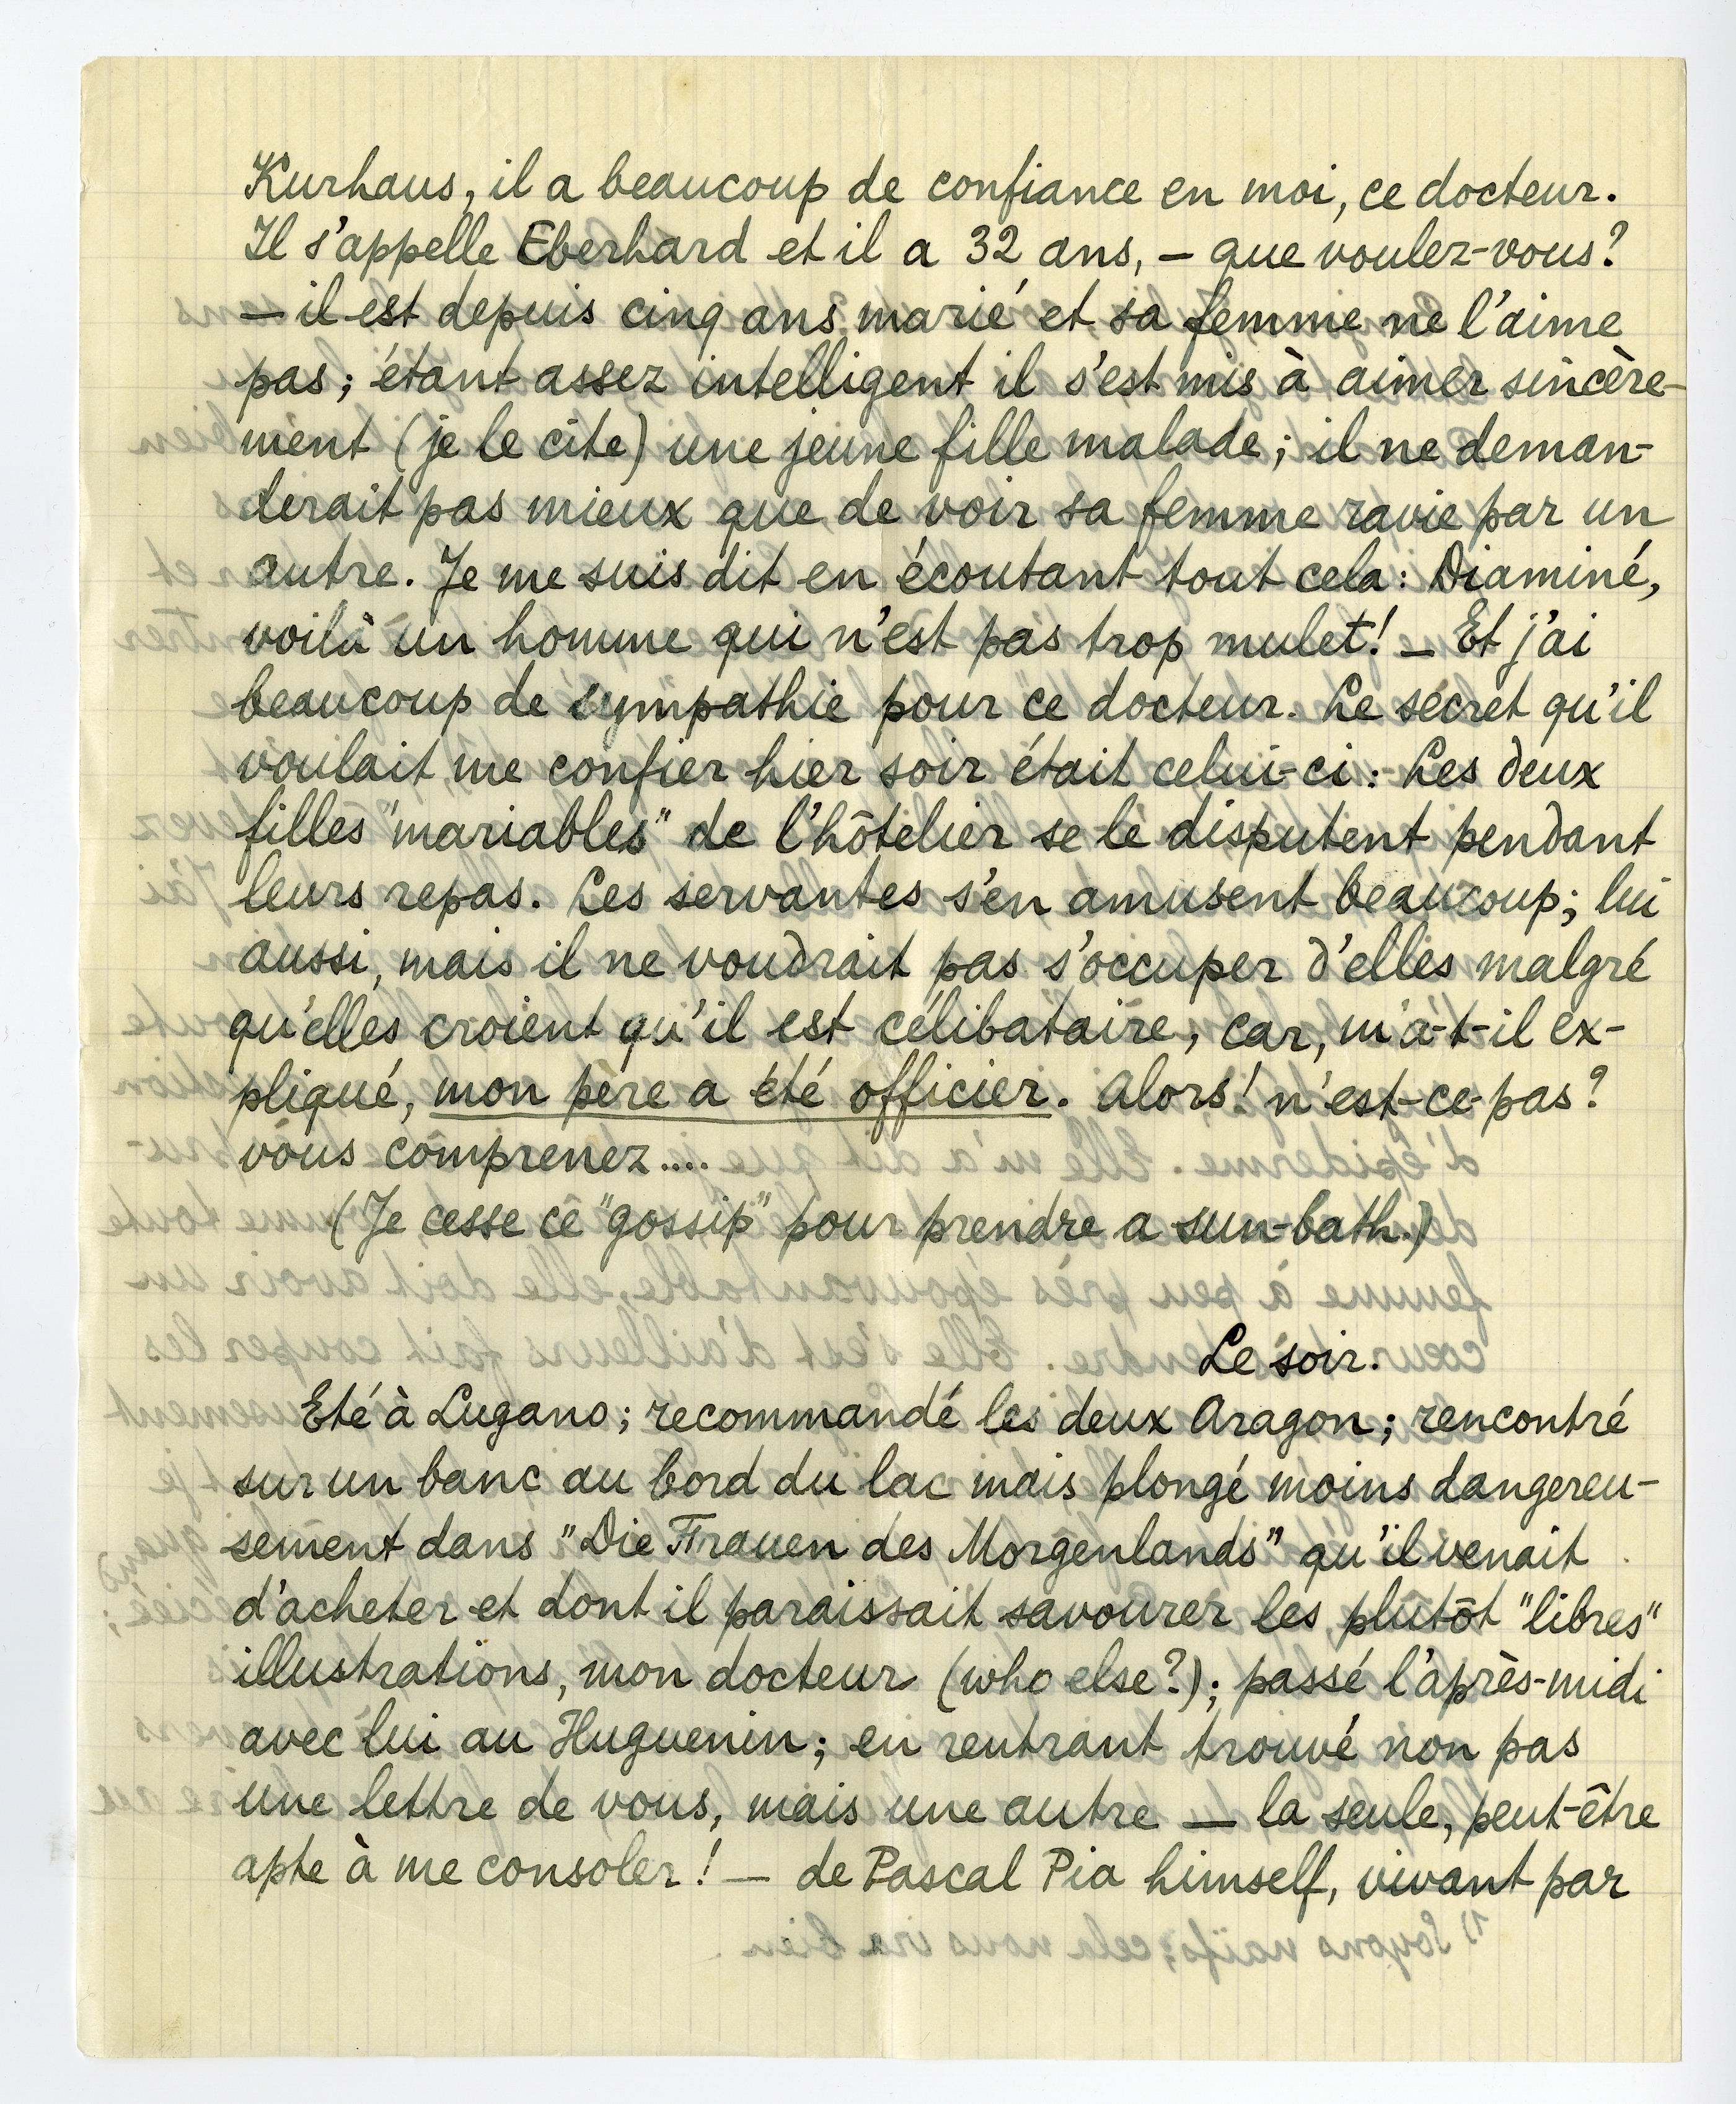 Kurhaus, il a beaucoup de confiance en moi, ce docteur.
Il s'appelle Eberhard et il a 32 ans, — que voulez-vous?
— il est depuis cinq ans marié et sa femme ne l'aime
pas; étant assez intelligent il s'est mis à aimer sincère-
ment (je le cite) une jeune fille malade; il ne deman-
derait pas mieux que de voir sa femme ravie par un
autre. Je me suis dit en écoutant tout cela: Diaminé,
voilà un homme qui n'est pas trop mulet! — Et j'ai
beaucoup de sympathie pour ce docteur. Le secret qu'il
voulait me confier hier soir était celui-ci: Les deux
filles "mariables" de l'hôtelier se le disputent pendant
leurs repas. Les servantes s'en amusent beaucoup; lui
aussi, mais il ne voudrait pas s'occuper d'elles malgré
qu'elles croient qu'il est célibataire, car, m'a-t-il ex-
pliqué, mon père a été officier. Alors! n'est-ce-pas?
vous comprenez....
(Je cesse ce "gossip" pour prendre a sun-bath.)
Le soir.
Eté à Lugano; recommandé les deux Aragon; rencontré
sur un banc au bord du lac mais plongé moins dangereu-
sement dans "Die Frauen des Morgenlands" qu'il venait
d'acheter et dont il paraissait savourer les plutôt "libres"
illustrations, mon docteur (who else?); passé l'après-midi
avec lui au Huguenin; en rentrant trouvé non pas
une lettre de vous, mais une autre — la seule, peut-être
apte à me consoler! — de Pascal Pia himself, vivant par